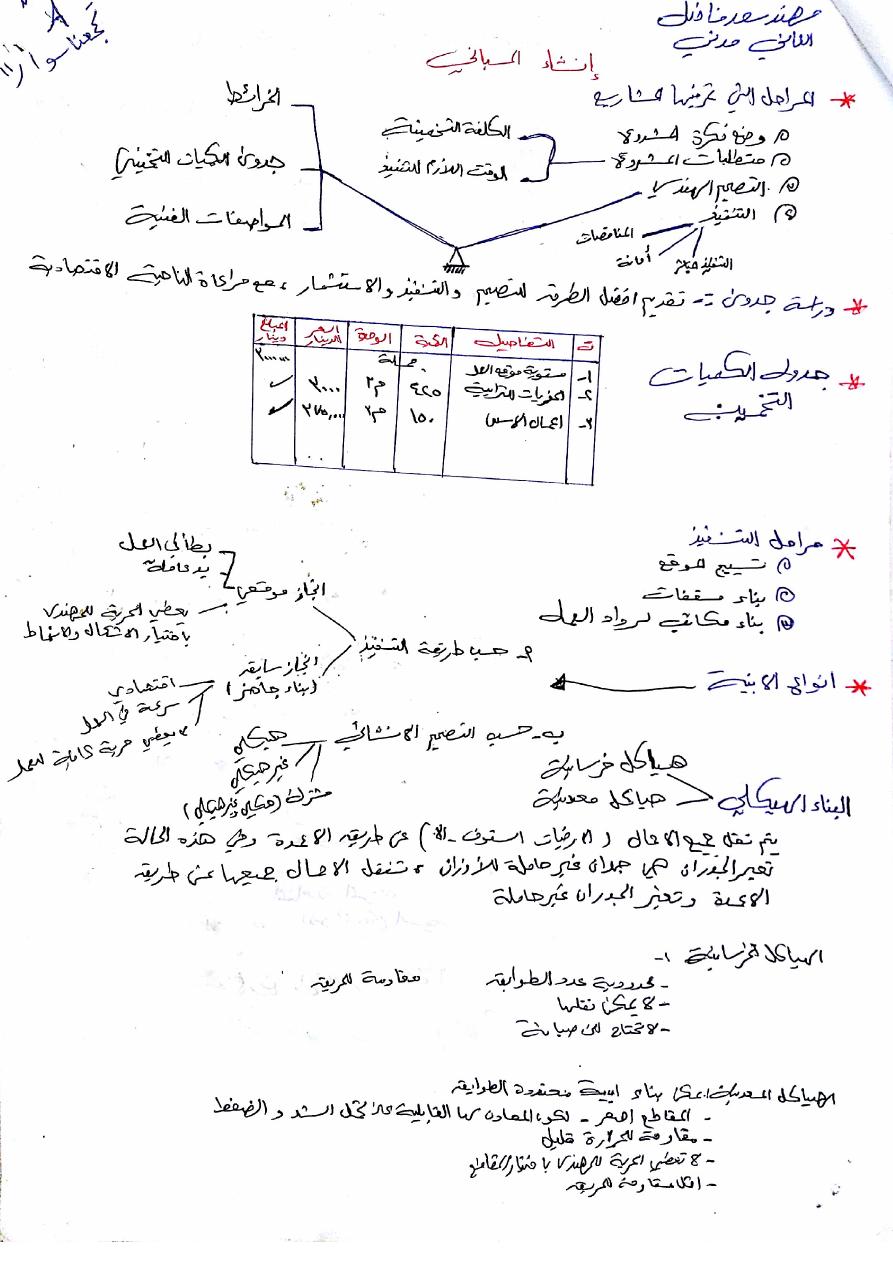 مهند سعد فاضل
الثاني مدني
تجمعنا سوا
إنشاء المباني
* المراحل التي تمر فيها المشاريع
١) وضع فكرة المشروع
٢) متطلبات المشروع
الكلفة التخمينية
الوقت اللازم للتنفيذ
٣) التصميم الهندسي
الخرائط
جدول الكميات التخميني
المواصفات الفنية
٤) التنفيذ
المناقصات
أمانة
التنفيذ مباشر
* دراسة جدوى :- تقديم افضل الطرق للتصميم والتنفيذ والاستثمار ، مع مراعاة الناحية الاقتصادية
* جدول الكميات
التخمين
ت التفاصيل الكمية الوحدة السعر بالدينار المبلغ دينار
١- تسوية موقع العمل جملة
٢- الحفريات الترابية ٤٢٥ م٣ ٣٠٠٠ ✓
٣- اعمال الاسس ١٥٠ م٣ ✓
* مراحل التنفيذ
١) تسييج الموقع
٢) بناء مسقفات
٣) بناء مكاتب لرواد العمل
* انواع الابنية
أ- حسب طريقة التنفيذ
انجاز موقعي
بطئ في العمل
يد عاملة
يعطي الحرية للمهندس
باختيار الاشكال والانماط
انجاز سابق
(بناء جاهز)
اقتصادي
سرعة في العمل
لا يعطي حرية كاملة للعمل
ب- حسب التصميم الانشائي
هيكلي
غير هيكلي
مشترك (هيكلي وغير هيكلي)
البناء الهيكلي
هياكل خرسانية
هياكل معدنية
يتم نقل جميع الاحمال (الارضيات السقوف - الخ) عن طريق الاعمدة وفي هذه الحالة
تعتبر الجدران هي جدران غير حاملة للأوزان ، تنتقل الاحمال جميعها عن طريق
الاعمدة وتعتبر الجدران غير حاملة
الهياكل الخرسانية ١-
- محدودية عدد الطوابق
مقاومة للحريق
- لا يمكن نقلها
- لا تحتاج الى صيانة
الهياكل المعدنية: يمكن بناء ابنية متعددة الطوابق
- المقاطع اصغر - لكون المعادن لها القابلية على تحمل الشد والضغط
- مقاومة للحرارة قليل
- لا تعطي الحرية للمهندس باختيار المقاطع
- اقل مقاومة للحريق